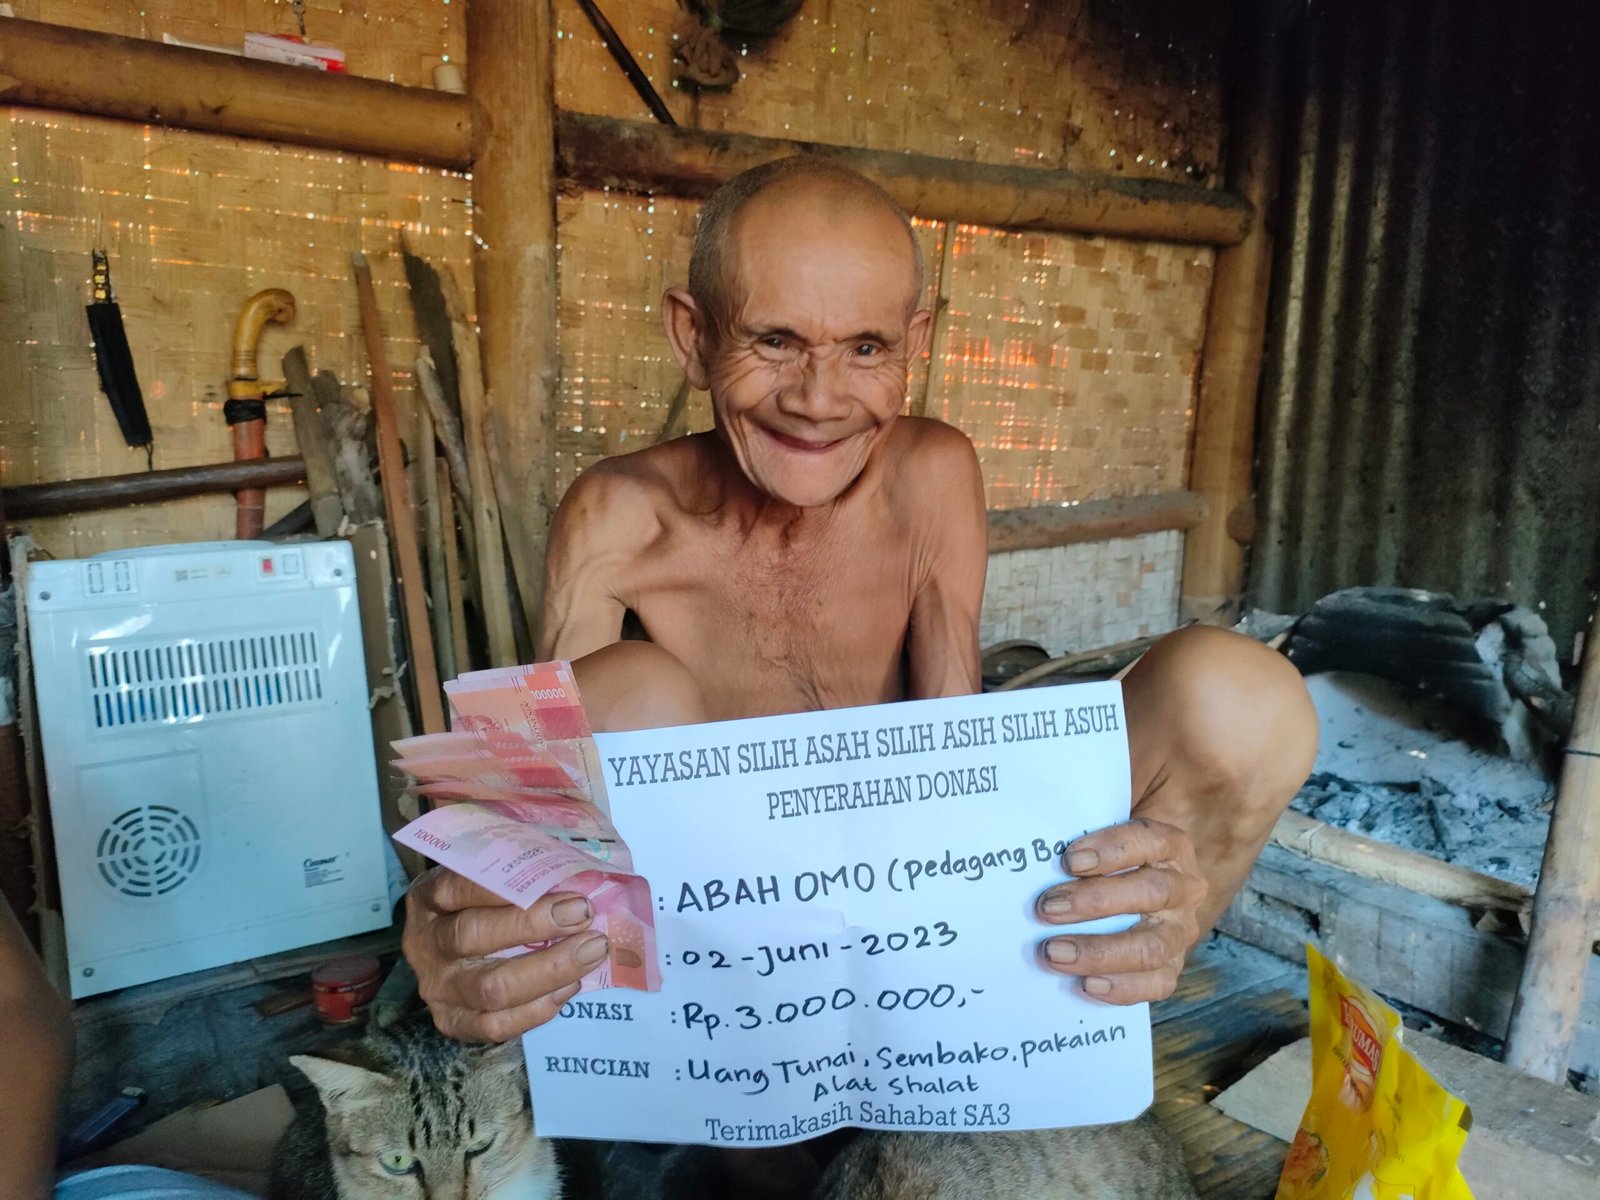 YAYASAN SILIH ASAH SILIH ASIH SILIH ASUH
PENYERAHAN DONASI
: ABAH OMO (Pedagang
: 02 - Juni - 2023
DONASI : Rp. 3.000.000,-
RINCIAN : Uang Tunai, Sembako, pakaian
Alat Shalat
Terimakasih Sahabat SA3
100000
100000